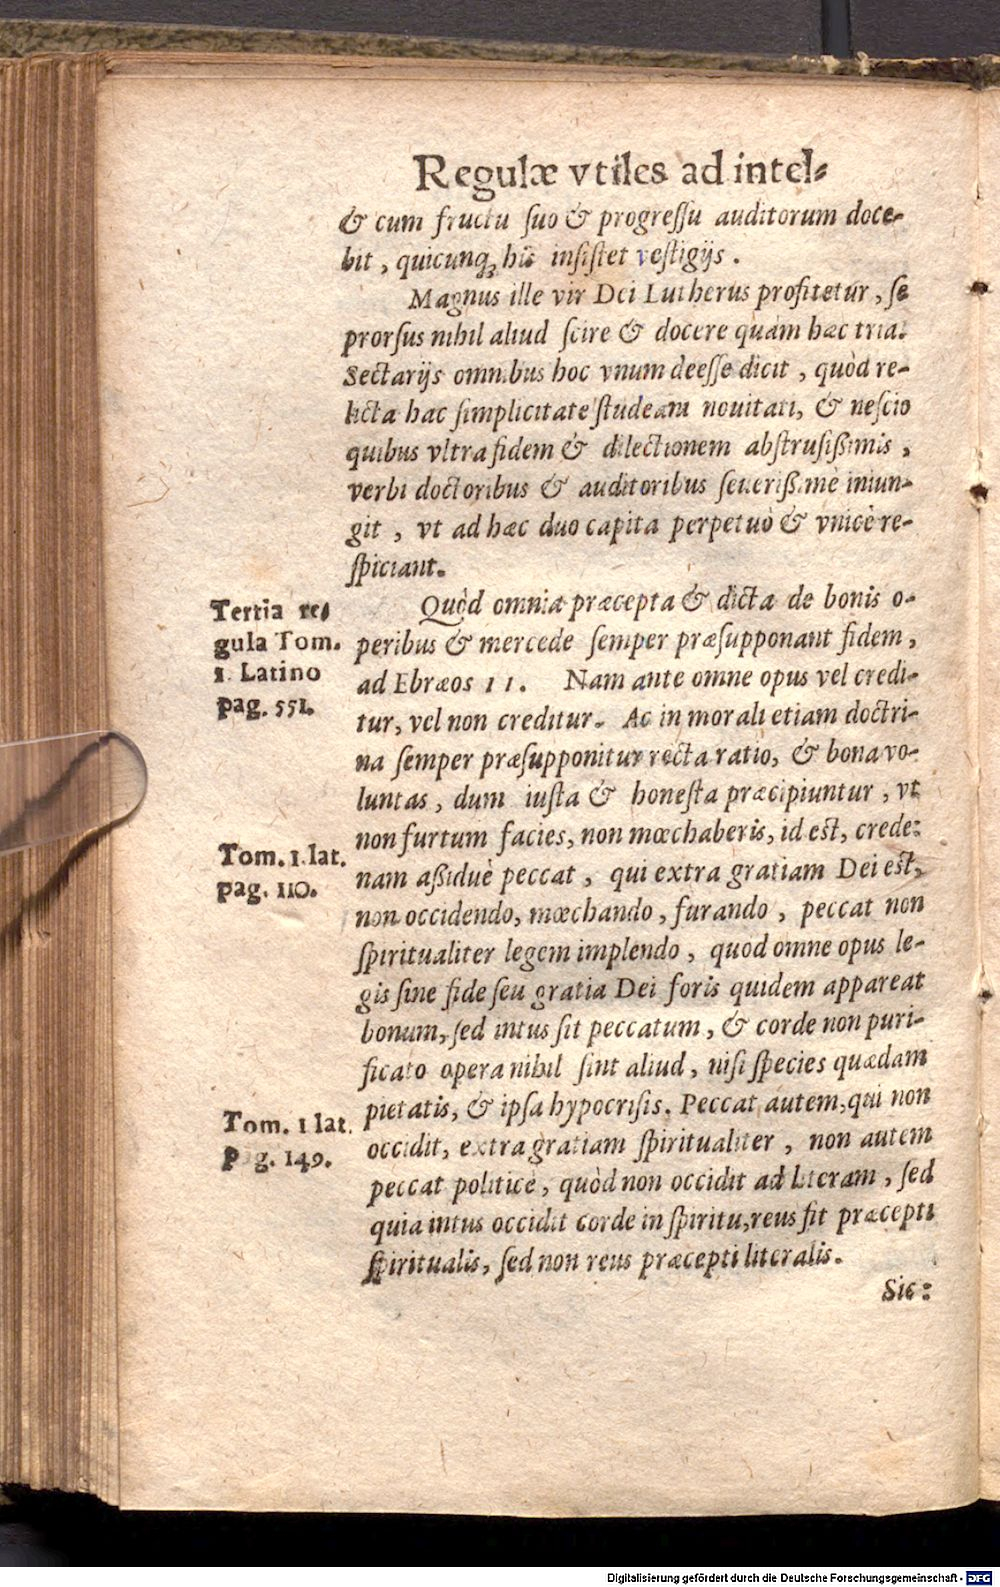 Regulæ vtiles ad intel-
& cum fructu suo & progressu auditorum doce-
bit, quicunq; his insistet vestigijs.
Magnus ille vir Dei Lutherus profitetur, se
prorsus nihil aliud scire & docere quàm hæc tria.
Sectarijs omnibus hoc vnum deesse dicit, quòd re-
licta hac simplicitate studeant nouitati, & nescio
quibus vltra fidem & dilectionem abstrusißimis,
verbi doctoribus & auditoribus seuerißimè iniun-
git, vt ad hæc duo capita perpetuò & vnicè re-
spiciant.
Tertia re-
gula Tom.
1. Latino
pag. 551.
Quòd omnia præcepta & dicta de bonis o-
peribus & mercede semper præsupponant fidem,
ad Ebræos 11. Nam ante omne opus vel credi-
tur, vel non creditur. Ac in morali etiam doctri-
na semper præsupponitur recta ratio, & bona vo-
luntas, dum iusta & honesta præcipiuntur, vt
non furtum facies, non mœchaberis, id est, crede:
Tom. 1. lat.
pag. 110.
nam aßiduè peccat, qui extra gratiam Dei est,
non occidendo, mœchando, furando, peccat non
spiritualiter legem implendo, quod omne opus le-
gis sine fide seu gratia Dei foris quidem appareat
bonum, sed intus sit peccatum, & corde non puri-
ficato opera nihil sint aliud, nisi species quædam
pietatis, & ipsa hypocrisis. Peccat autem, qui non
Tom. 1 lat.
pag. 149.
occidit, extra gratiam spiritualiter, non autem
peccat politicè, quòd non occidit ad literam, sed
quia intus occidit corde in spiritu, reus fit præcepti
spiritualis, sed non reus præcepti literalis.
Sic:
Digitalisierung gefördert durch die Deutsche Forschungsgemeinschaft - DFG